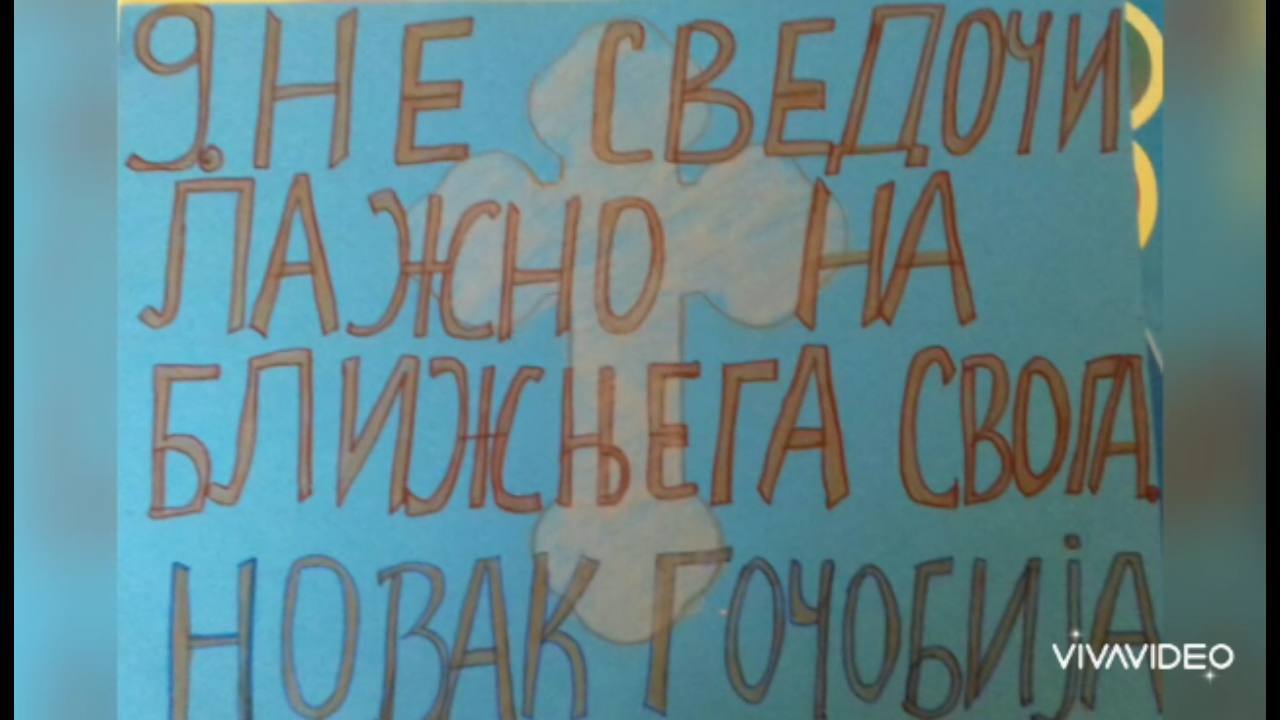 9. НЕ СВЕДОЧИ
ЛАЖНО НА
БЛИЖЊЕГА СВОГА.
НОВАК ГОЧОБИЈА
VIVAVIDEO